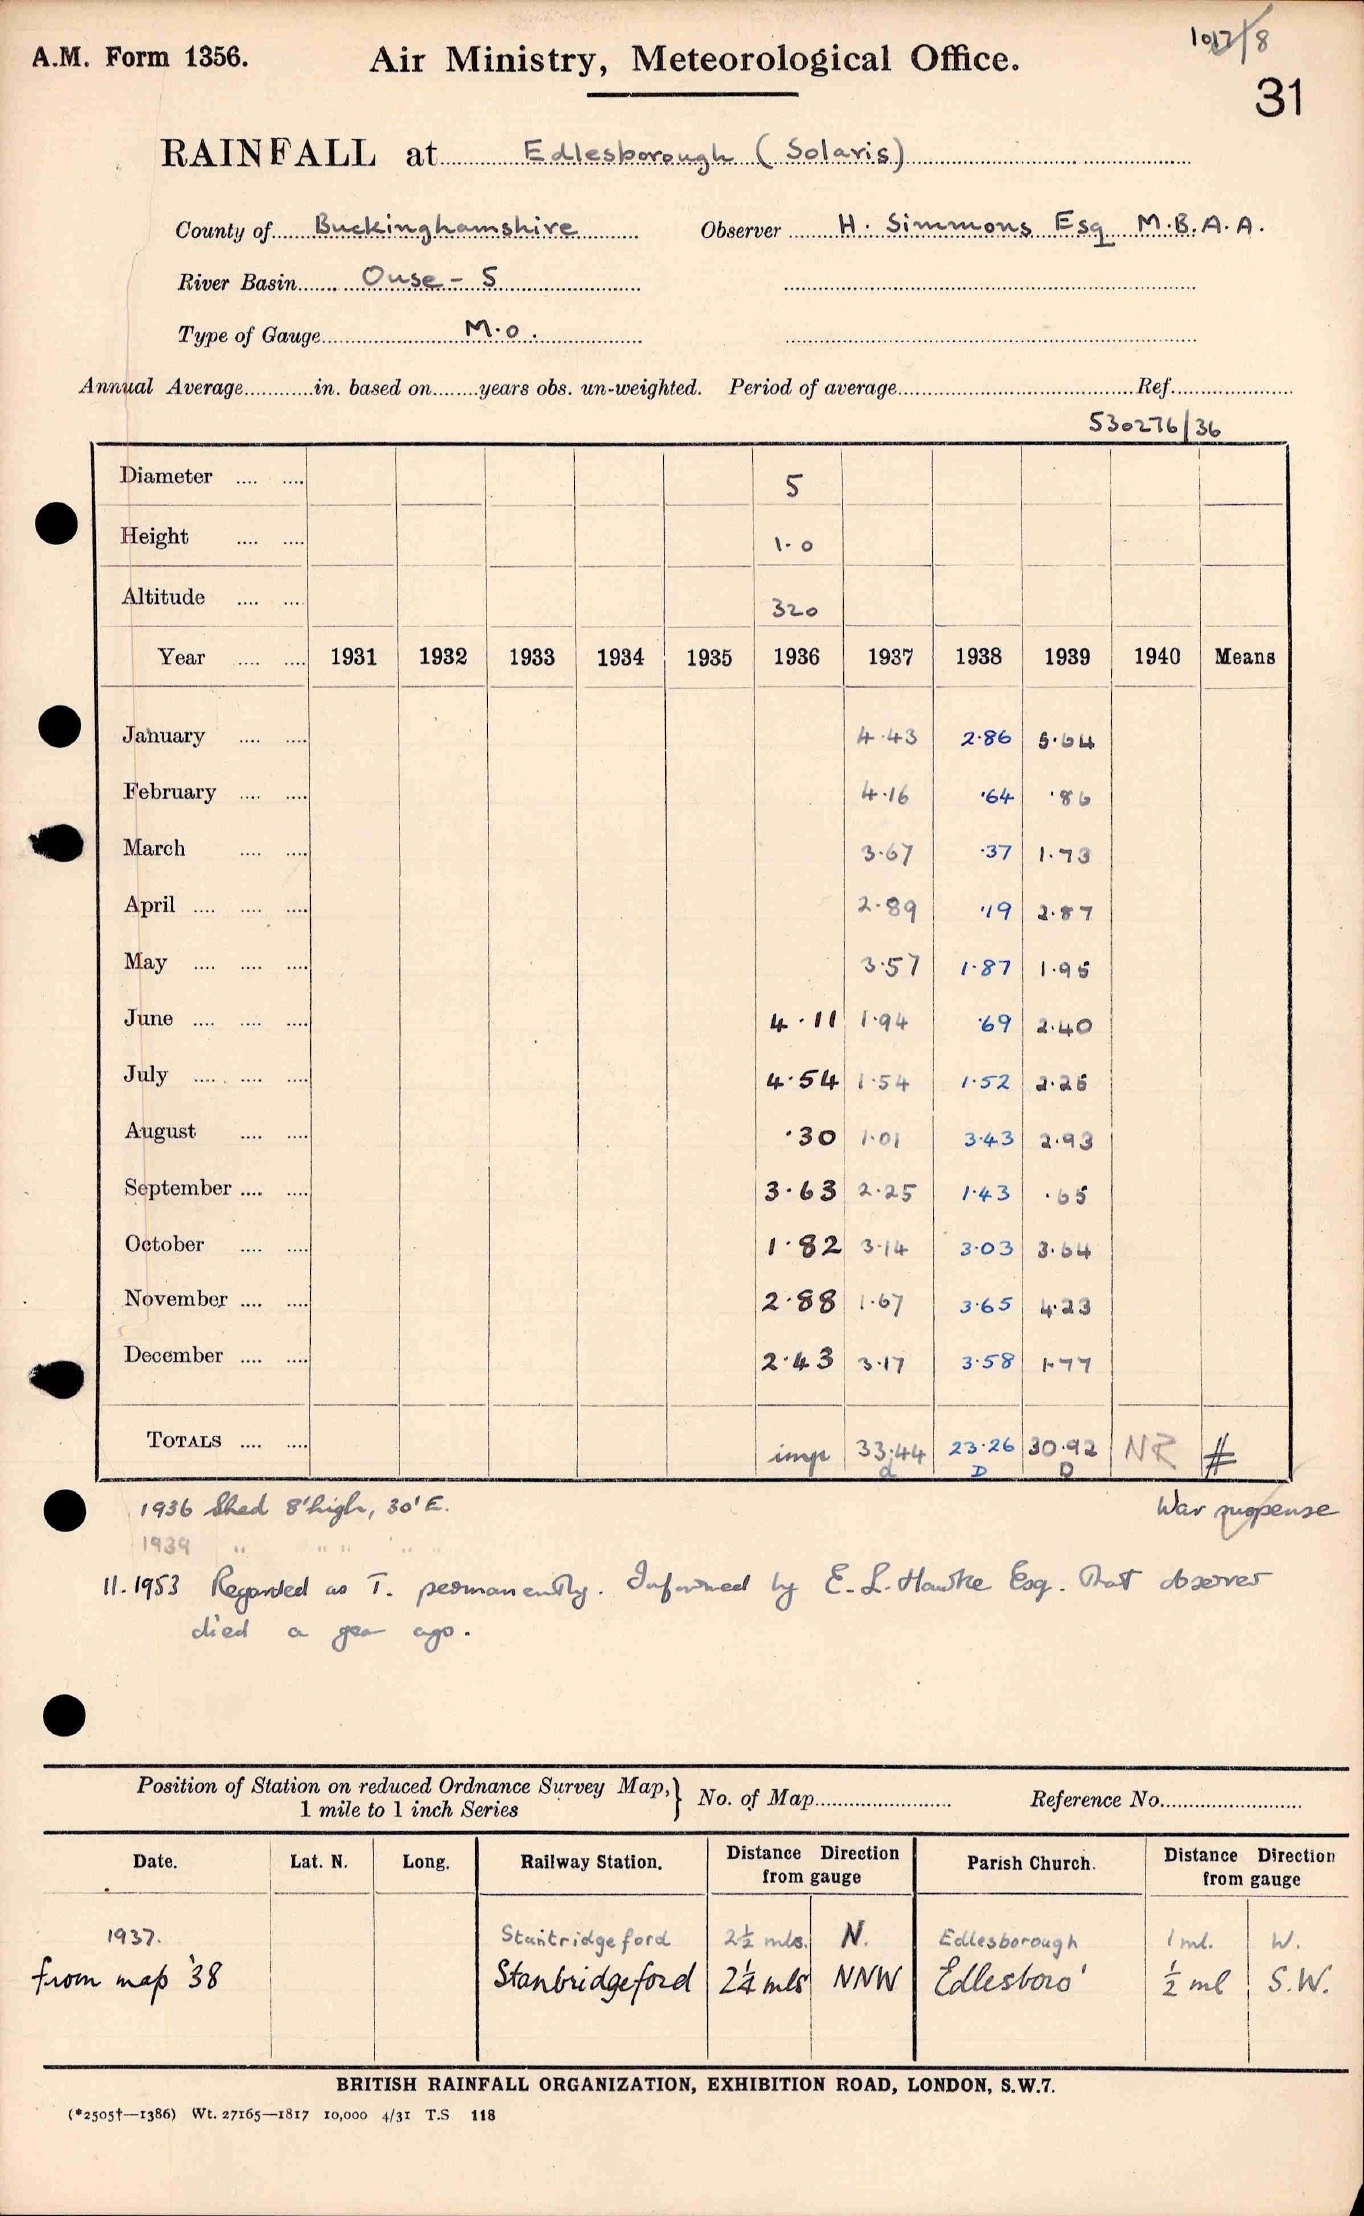 A.M. Form 1356.
Air Ministry, Meteorological Office.
31
RAINFALL at Edlesborough (Solaris)
County of Buckinghamshire Observer H. Simmons Esq M.B.A.A.
River Basin Ouse - 5
Type of Gauge M.O.
Annual Average in. based on years obs. un-weighted. Period of average Ref.
530276/36
Diameter 5
Height 1.0
Altitude 320
Year 1931 1932 1933 1934 1935 1936 1937 1938 1939 1940 Means
January 4.43 2.86 5.64
February 4.16 .64 .86
March 3.67 .37 1.73
April 2.89 .19 2.87
May 3.57 1.87 1.95
June 4.11 1.94 .69 2.40
July 4.54 1.54 1.52 2.25
August .30 1.01 3.43 2.93
September 3.63 2.25 1.43 .65
October 1.82 3.14 3.03 3.64
November 2.88 1.67 3.65 4.23
December 2.43 3.17 3.58 1.77
TOTALS imp 33.44 23.26 30.92 NR #
d D D
1936 Shed 8' high, 30' E. War suspense
1939 " " " " "
11.1953 Regarded as T. permanently. Informed by E. L. Hawke Esq. that observer
died a year ago.
Position of Station on reduced Ordnance Survey Map, } No. of Map Reference No.
1 mile to 1 inch Series
Date. Lat. N. Long. Railway Station. Distance Direction from gauge Parish Church. Distance Direction from gauge
1937. Stantridgeford 2½ mls. N. Edlesborough 1 ml. W.
from map '38 Stanbridgeford 2¼ mls NNW Edlesboro' ½ ml S.W.
BRITISH RAINFALL ORGANIZATION, EXHIBITION ROAD, LONDON, S.W.7.
(*2505†—1386) Wt. 27165—1817 10,000 4/31 T.S 118